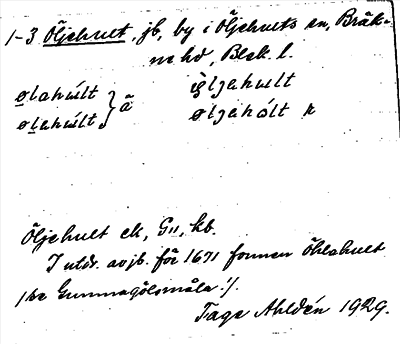 1-3 Öljehult, jb, by i Öljehults sn, Bräk-
ne hd, Blek. l.
ølahúlt } ã ø̀ljahult
ølahúlt øljahólt k
Öljehult ek, G11, kb.
I utdr. av jb. för 1671 formen Öhlahult
/se Gummagölsmåla!/.
Tage Ahldén 1929.